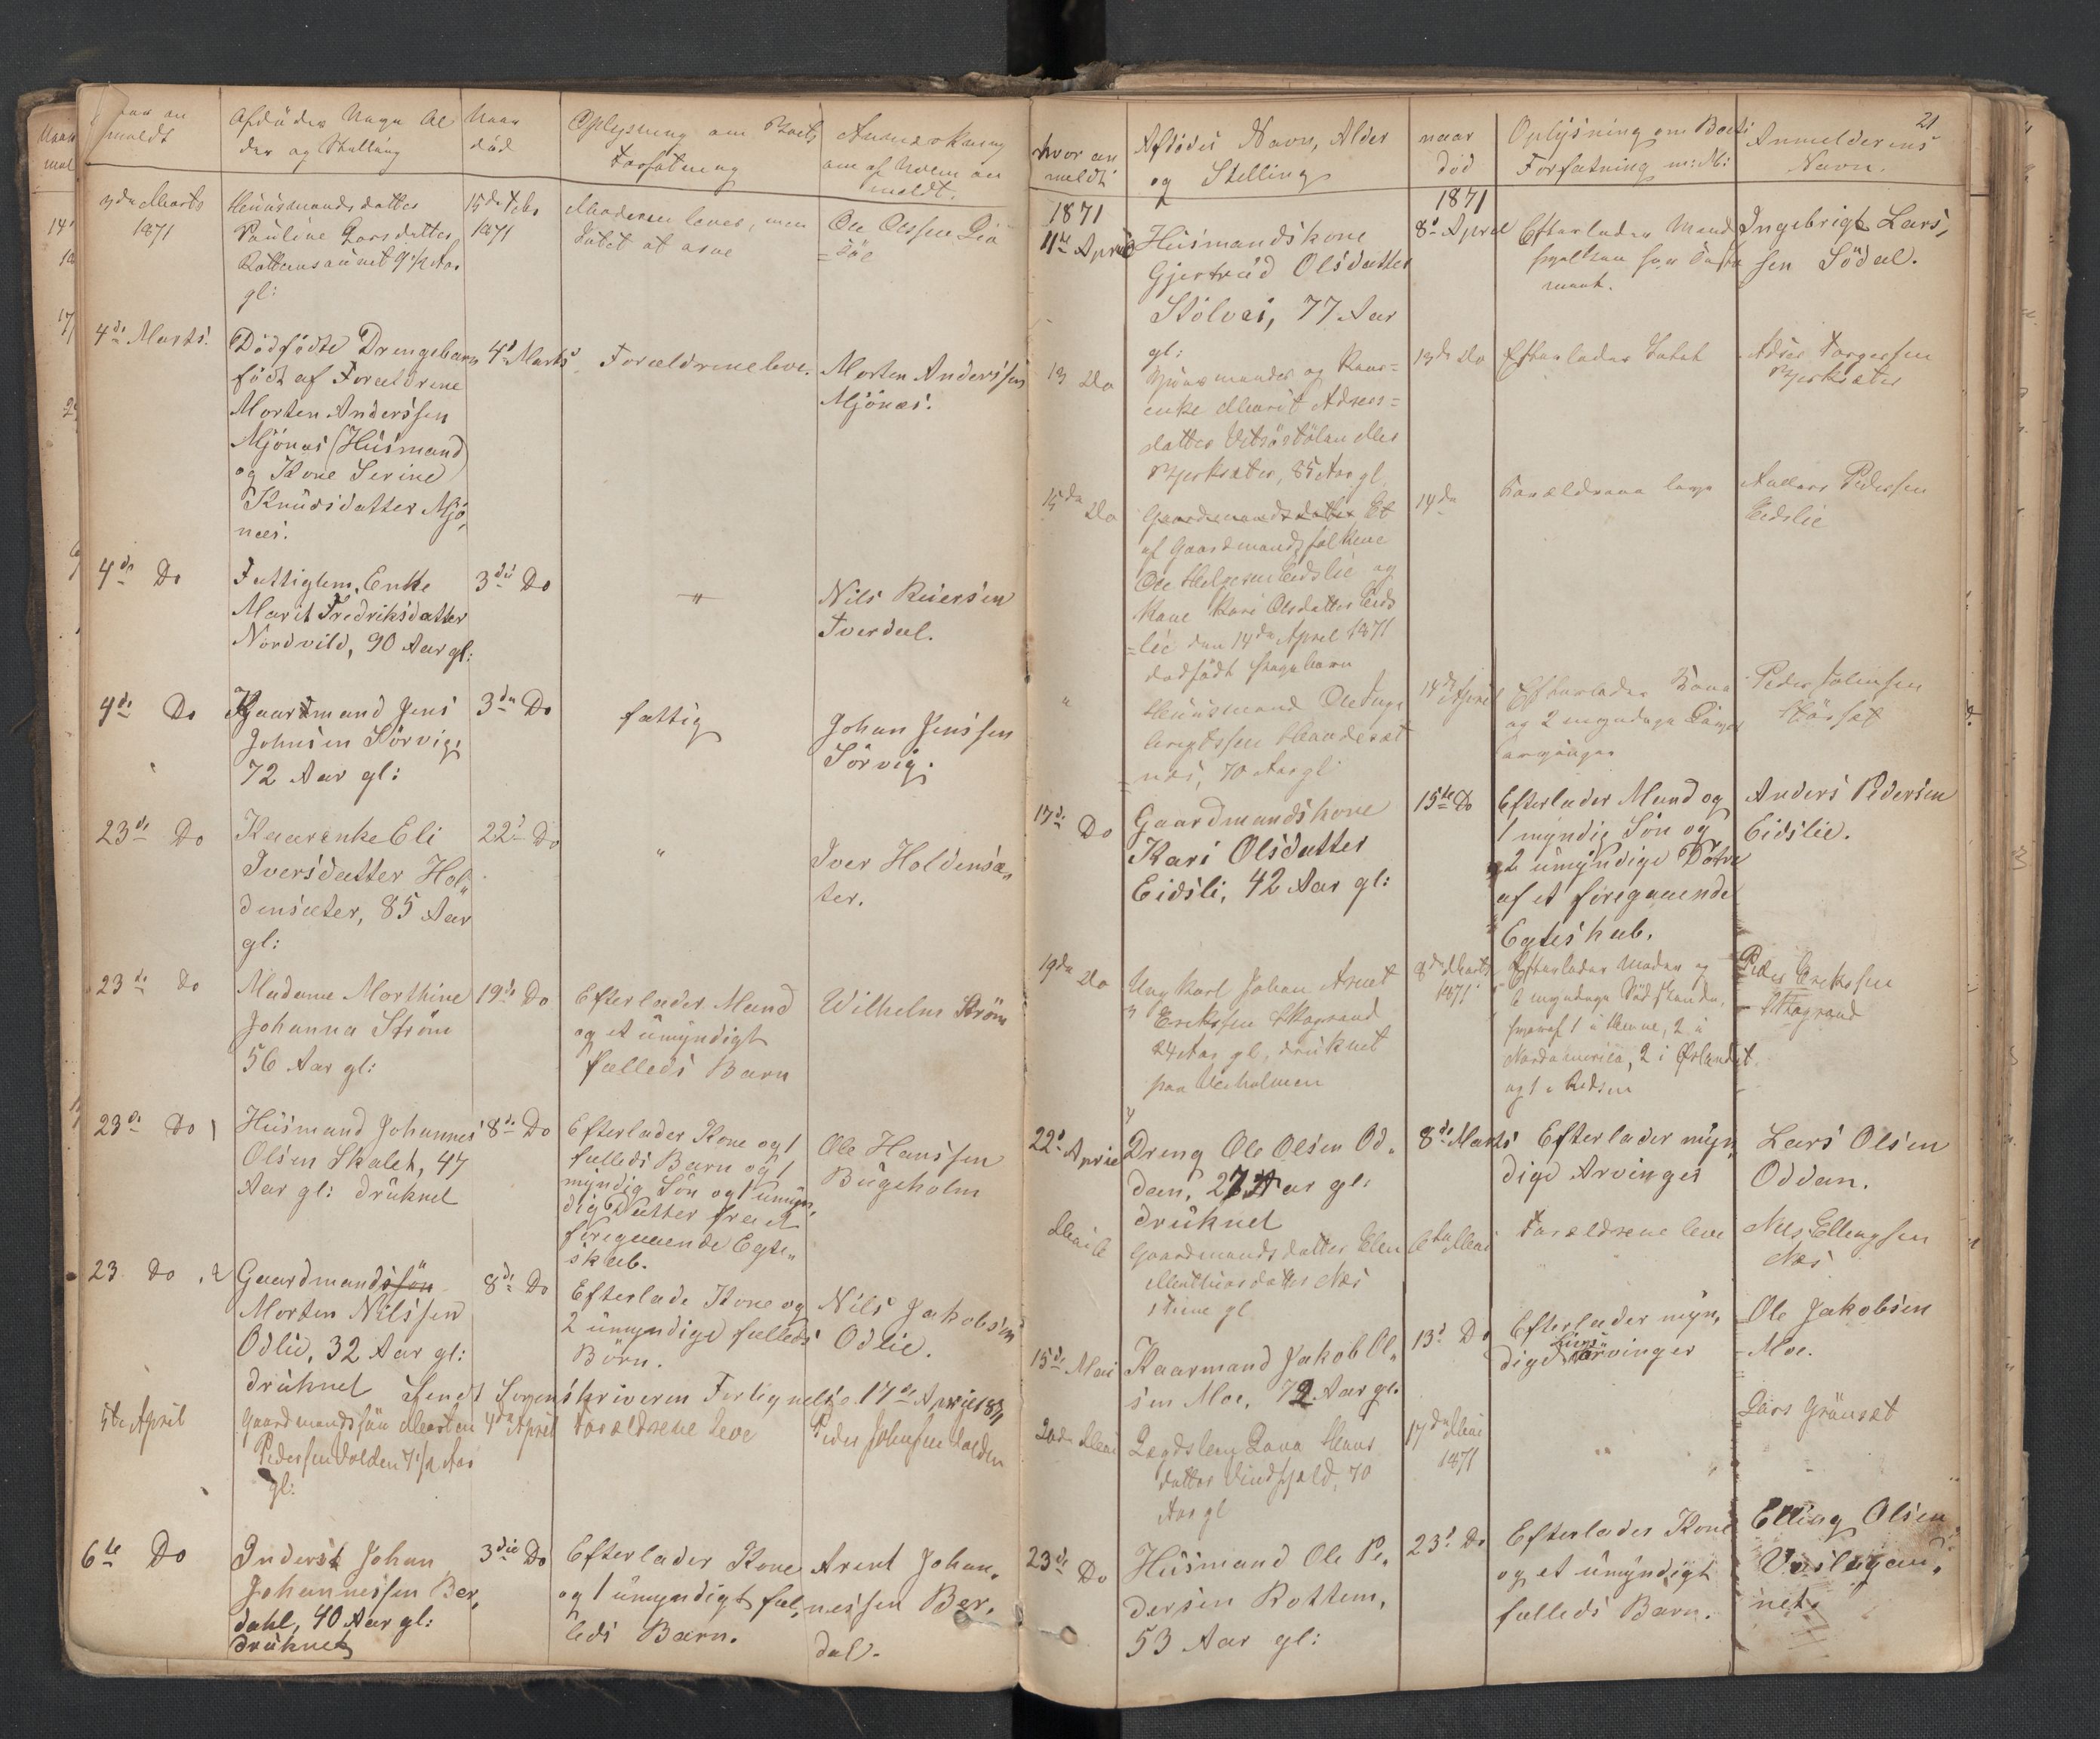 meldt
Afdødes Navn Al
der og Stelling
Naar
død
Oplysning om Boets
Forfatning
Anmerkning
om af hvem an
meldt.
3die Marts
1871
Huusmandsdatter
Pauline Larsdatter
Rottemsaunet 9 1/2 Aar
gl:
15de Febr
1871
Moderen lever, men
Intet at arve
Ole Olssen
4de Marts.
Dødfødte Drengebarn
født af Forældrene
Morten Anderssen
Mjönes (Husmand)
og Kone Serine
Knudsdatter Mjö-
nes.
4de Marts
Forældrene leve.
Morten Anderssen
Mjönes.
4de Do
Fattiglem, Enke
Marit Fredriksdatter
Nordvild, 90 Aar gl:
3die Do
"
Nils Reiersen
Tverdal.
4de Do
Kaarmand Jens
Johnsen Sörvig,
72 Aar gl:
3die Do
fattig
Johan Jenssen
Sörvig.
23de Do
Kaarenke Eli
Iversdatter Hol„
densæter, 85 Aar
gl:
22de Do
"
Iver Holdensæ„
ter.
23de Do
Madame Morthine
Johanna Ström
56 Aar gl:
19de Do
Efterlader Mand
og et umyndigt
fælleds Barn
Wilhelm Ström
23de Do 1
Husmand Johannes
Olsen Skalet, 47
Aar gl: druknet
8de Do
Efterlader Kone og 1
fælleds Barn og 1
myndig Sön og 1 umyn„
dig Datter fra et
foregaaende Egte„
skab.
Ole Hanssen
Bugeholm
23 Do 2
Gaardmandssön
Morten Nilssen
Odlie, 32 Aar gl:
druknet
8de Do
Efterlade Kone og
2 umyndige fælleds
Börn.
Nils Jakobsen
Odlie.
Sendt Sorenskriveren Fortegnelse 17de April 1871
5te April
Gaardmandssön Morten
Pedersen Volden 7 1/2 Aar
gl:
4de April
Forældrene leve
Peder Johnsen Volden
6te Do
Inderst Johan
Johannessen Ber„
dahl, 40 Aar gl:
druknet
3die Do
Efterlader Kone
og 1 umyndigt fæl„
leds Barn.
Arent Johan„
nessen Ber„
dal.
21
naar an
meldt
Afdødes Navn, Alder
og Stelling
naar
død
Oplysning om Boets
Forfatning m: M:
Anmelderens
Navn.
1871
11te April
Husmandskone
Gjertrud Olsdatter
Stölvei, 77 Aar
gl:
1871
8de April
Efterlader Mand
hvilken har Testa
ment.
Ingebrigt Lars„
sen Södal.
13 Do
og Kaar-
enke Marit
datter
Bjerksæter, 85 Aar gl
13de Do
Efterlader Intet
Torgersen
Bjerksæter
15de Do
Gaardmandsdatter Et
af Gaardmandsfolkene
Ole Helgesen Eidslie og
Kone Kari Olsdatter Eids
=lie den 14de April 1871
dødfødt Pigebarn
14de
Forældrene leve
Anders Pedersen
Eidslie
"
Huusmand Ole Inge
brigtssen
næs, 70 Aar gl
14de April
Efterlader Kone
og 2 myndige
arvinger
Peder
17de Do
Gaardmandskone
Kari Olsdatter
Eidsli, 42 Aar gl:
15te Do
Efterlader Mand og
1 myndig Sön og
2 umyndige Dötre
af et foregaaende
Egteskab.
Anders Pedersen
Eidslie.
19de Do
3
Ungkarl Johan Arnt
Erikssen Skagrand
24 Aar gl, druknet
paa Veiholmen
8de Marts
1871
Efterlader Moder og
6 myndige Södskende,
hvoraf 1 i Hevne, 2 i
Nordamerica, 2 i Ørlandet
og 1 i
Peder Erikssen
Skagrand
22de April
4
Dreng Ole Olsen Od„
dan, 27 Aar gl:
druknet
8de Marts
Efterlader myn„
dige Arvinger
Lars Olsen
Oddan.
Mai 6
Gaardmandsdatter Elen
Mathiasdatter Næs
gl
6te Mai
Forældrene leve
Nils Ellingsen
Næs
15de Mai
Kaarmand Jakob Ol„
sen Moe, 72 Aar gl:
13de Do
Efterlader myn„
dige Livs
arvinger
Ole Jakobsen
Moe.
20de Mai
Lægdslem Hans
datter Vindfjeld, 70
Aar gl
17de Mai
1871
"
Lars Grönset
23de Do
Husmand Ole Pe„
dersen Rottem,
53 Aar gl:
23de Do
Efterlader Kone
og et umyndigt
fælleds Barn.
Elling Olsen
Veslegau„
net.